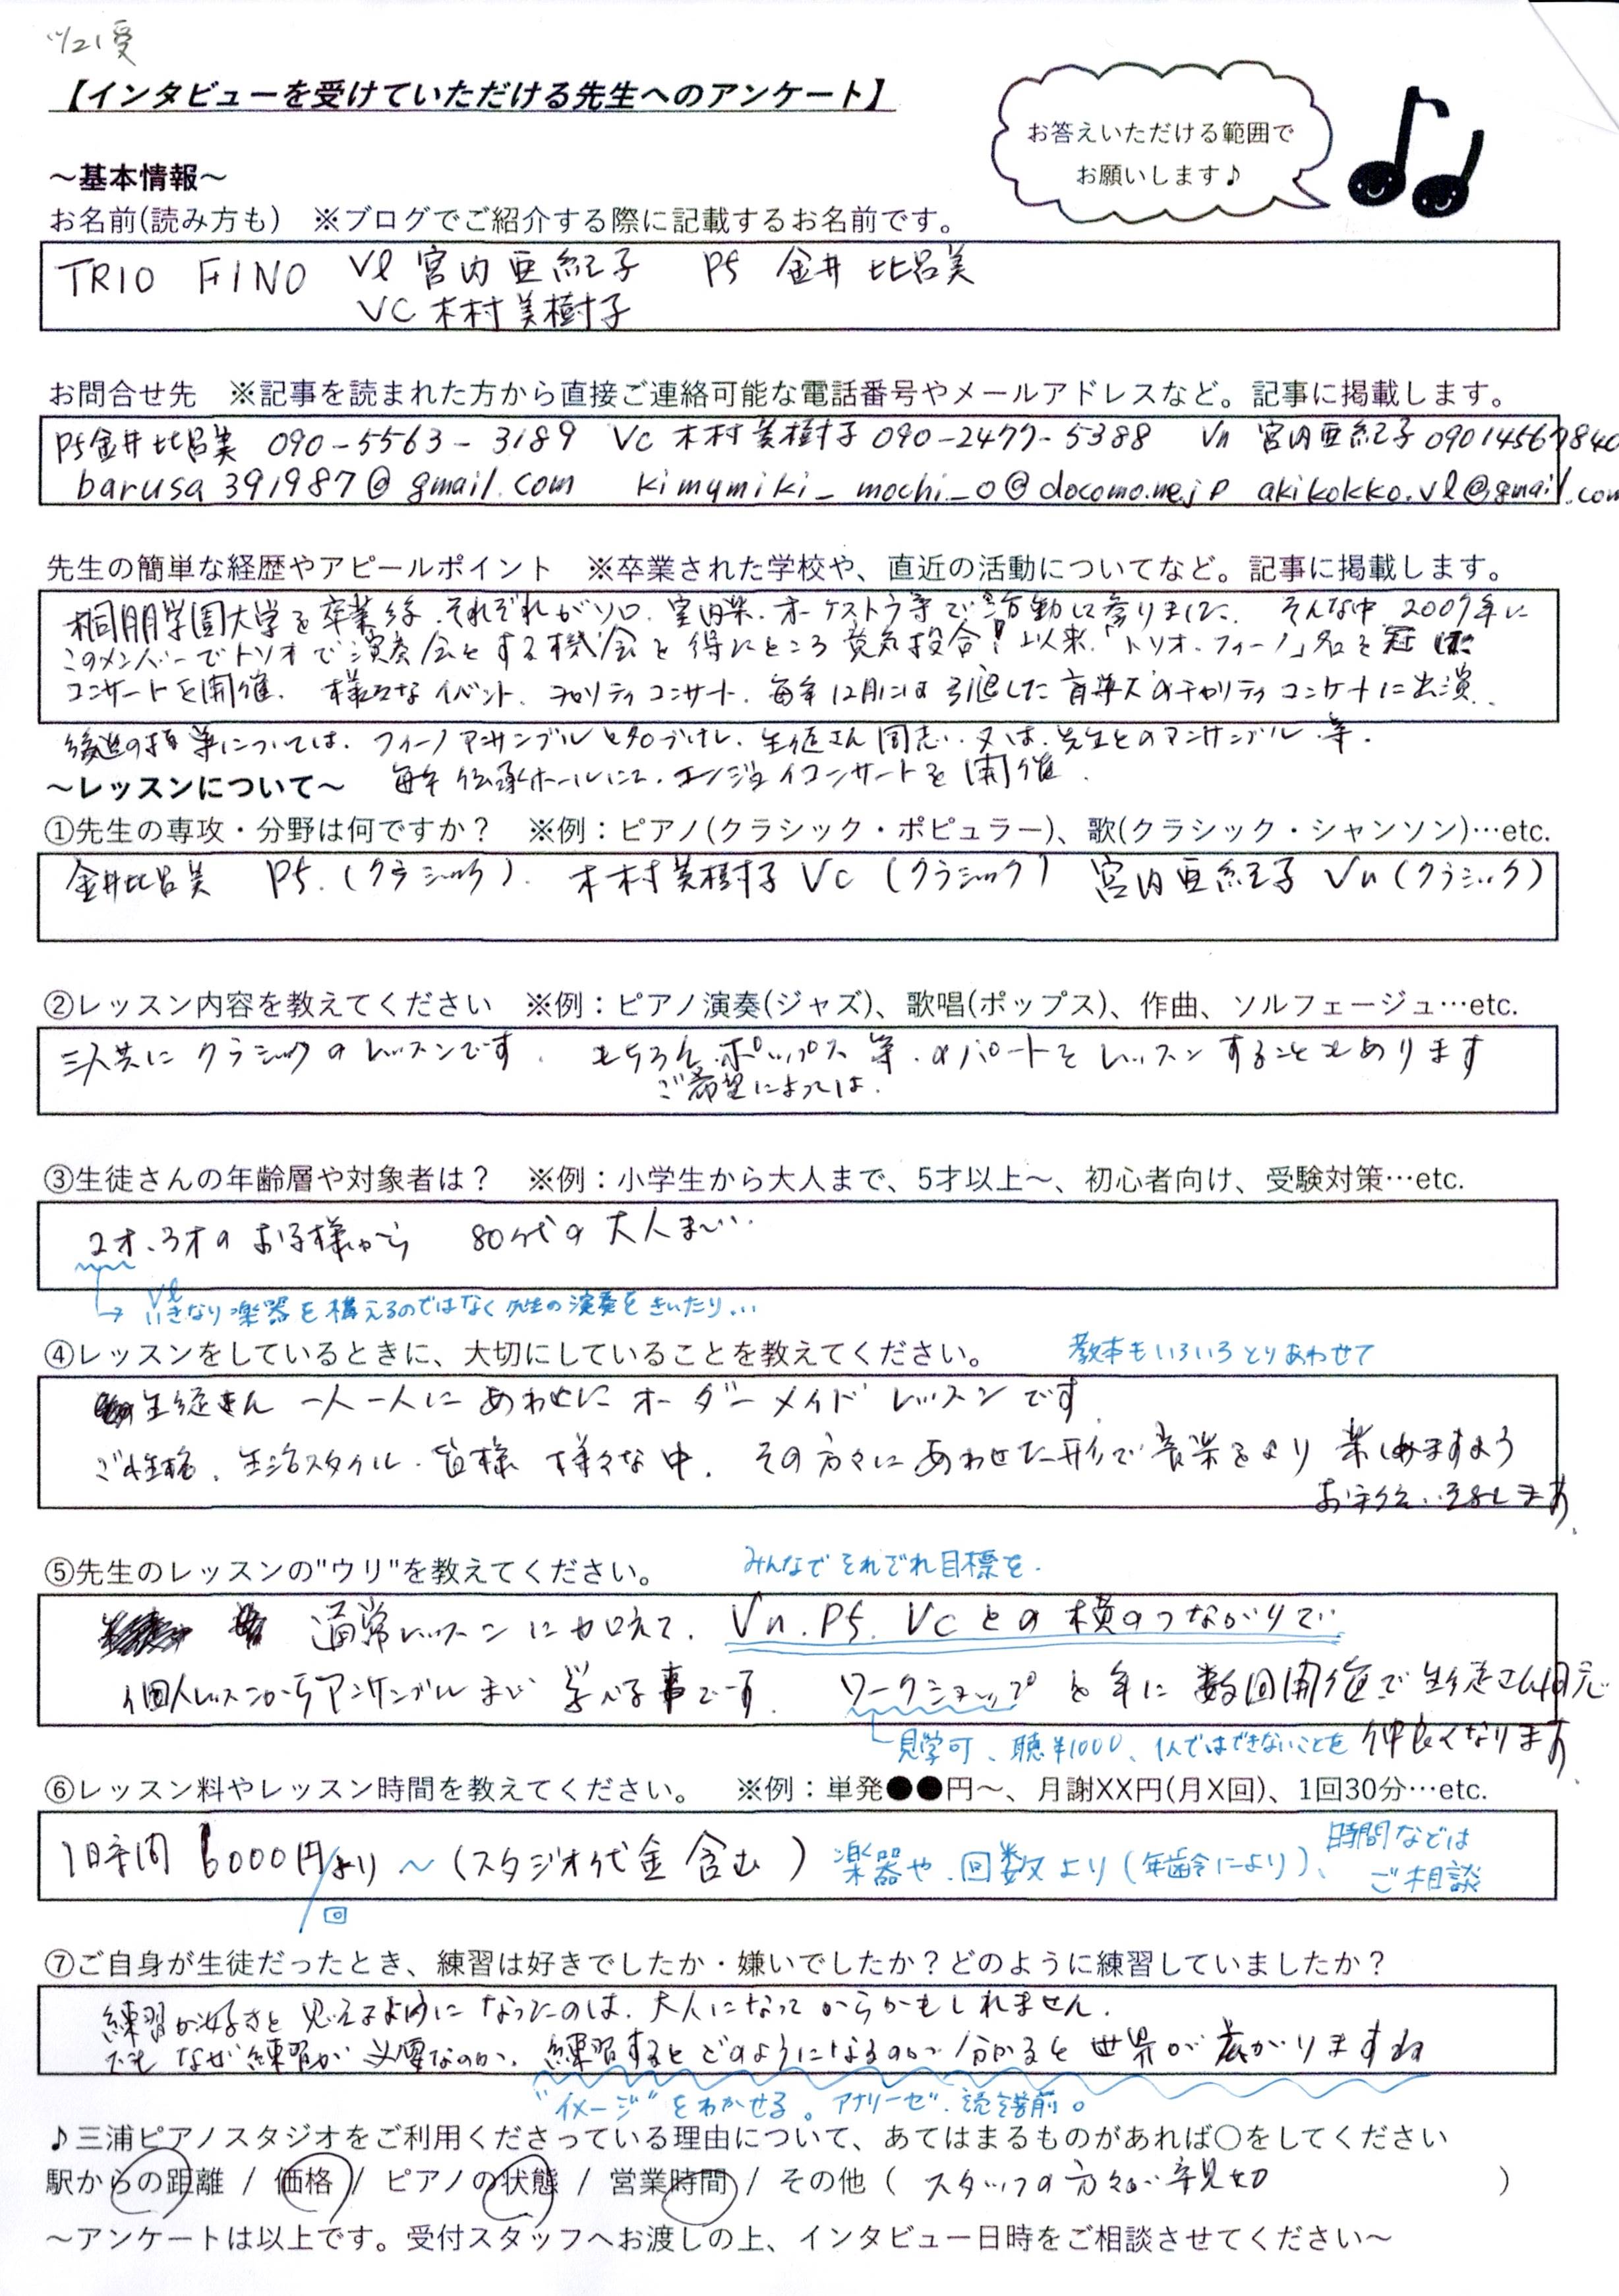 11/21受
【インタビューを受けていただける先生へのアンケート】
お答えいただける範囲で
お願いします♪
～基本情報～
お名前(読み方も)　※ブログでご紹介する際に記載するお名前です。
TRIO FINO Vl 宮内亜紀子 Pf 金井比呂美
VC 木村美樹子
お問合せ先　※記事を読まれた方から直接ご連絡可能な電話番号やメールアドレスなど。記事に掲載します。
Pf金井比呂美 090-5563-3189 Vc 木村美樹子 090-2477-5388 Vn 宮内亜紀子 09014567840
barusa391987@gmail.com kimumiki_mochi_o@docomo.ne.jp akikokko.vl@gmail.com
先生の簡単な経歴やアピールポイント　※卒業された学校や、直近の活動についてなど。記事に掲載します。
桐朋学園大学を卒業後、それぞれがソロ、室内楽、オーケストラ等で活動して参りました。そんな中、2007年に
このメンバーでトリオで演奏会をする機会を得たところ意気投合！以来、「トリオ・フィーノ」名を冠した
コンサートを開催、様々なイベント、チャリティコンサート、毎年12月には引退した盲導犬のチャリティコンサートに出演、
後進の指導については、フィーノアンサンブルと名づけし、生徒さん同志、又は、先生とのアンサンブル等、
毎年伝承ホールにて、エンジョイコンサートを開催、
～レッスンについて～
①先生の専攻・分野は何ですか？　※例：ピアノ(クラシック・ポピュラー)、歌(クラシック・シャンソン)…etc.
金井比呂美 Pf.(クラシック). 木村美樹子 Vc (クラシック) 宮内亜紀子 Vn (クラシック)
②レッスン内容を教えてください　※例：ピアノ演奏(ジャズ)、歌唱(ポップス)、作曲、ソルフェージュ…etc.
三人共にクラシックのレッスンです。もちろん、ポップス等、のパートをレッスンすることもあります
ご希望によっては、
③生徒さんの年齢層や対象者は？　※例：小学生から大人まで、5才以上～、初心者向け、受験対策…etc.
2才、3才のお子様から 80代の大人まで、
Vl
→いきなり楽器を構えるのではなく先生の演奏をきいたり...
④レッスンをしているときに、大切にしていることを教えてください。
教本もいろいろとりあわせて
生徒さん一人一人にあわせたオーダーメイドレッスンです
ご性格、生活スタイル、皆様様々な中、その方々にあわせた形で音楽をより楽しめますよう
お手伝い致します。
⑤先生のレッスンの"ウリ"を教えてください。
みんなでそれぞれ目標を、
通常レッスンに加えて、Vn.Pf.Vcとの横のつながりで
個人レッスンからアンサンブルまで学べる事です。ワークショップを年に数回開催で生徒さん同志
仲良くなります。
見学可、聴￥1000、1人ではできないことを
⑥レッスン料やレッスン時間を教えてください。　※例：単発●●円～、月謝XX円(月X回)、1回30分…etc.
1時間 6000円/回より～(スタジオ代金含む) 楽器や、回数より(年齢により)、時間などは
ご相談
⑦ご自身が生徒だったとき、練習は好きでしたか・嫌いでしたか？どのように練習していましたか？
練習が好きと思えるようになったのは、大人になってからかもしれません。
でもなぜ練習が必要なのか、練習するとどのようになるのか分かると世界が広がりますね
"イメージ"をわかせる。アナリーゼ、読譜前。
♪三浦ピアノスタジオをご利用くださっている理由について、あてはまるものがあれば○をしてください
駅からの距離 / 価格 / ピアノの状態 / 営業時間 / その他 ( スタッフの方々が親切 )
～アンケートは以上です。受付スタッフへお渡しの上、インタビュー日時をご相談させてください～